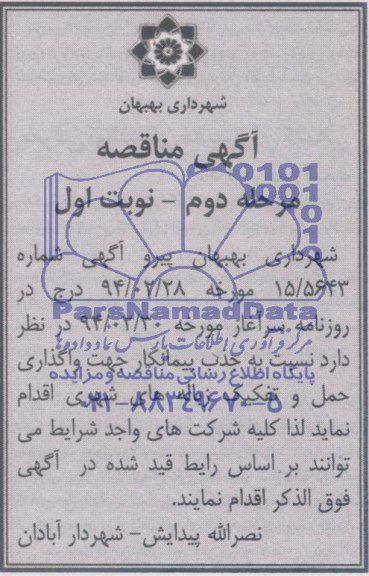 شهرداری بهبهان
آگهی مناقصه
مرحله دوم - نوبت اول
شهرداری بهبهان پیرو آگهی شماره
۱۵/۵۶۴۳ مورخه ۹۴/۰۲/۲۸ درج در
روزنامه سرآغاز مورخه ۹۴/۰۲/۳۰ در نظر
دارد نسبت به جذب پیمانکار جهت واگذاری
حمل و تفکیک زباله های شهری اقدام
نماید لذا کلیه شرکت های واجد شرایط می
توانند بر اساس رایط قید شده در آگهی
فوق الذکر اقدام نمایند.
نصرالله پیدایش- شهردار آبادان
ParsNamadData
مرکز فرآوری اطلاعات پارس نماد داده ها
پایگاه اطلاع رسانی مناقصه و مزایده
۰۲۱-۸۸۳۴۹۶۷۰-۵